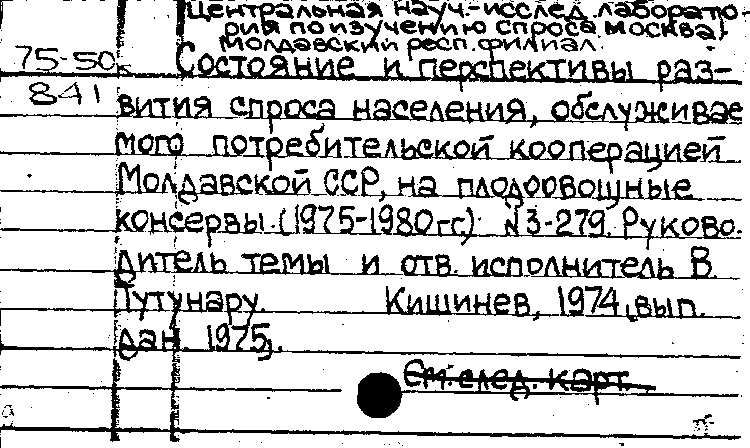 Центральная науч.-исслед. лаборато-
рия по изучению спроса, Москва).
Молдавский респ. филиал.
75-50к Состояние и перспективы раз-
841 вития спроса населения, обслуживае
мого потребительской кооперацией
Молдавской ССР, на плодоовощные
консервы. (1975-1980 гг.) N 3-279. Руково-
дитель темы и отв. исполнитель В.
Тутунару. Кишинев, 1974, вып.
дан. 1975).
См. след. карт.